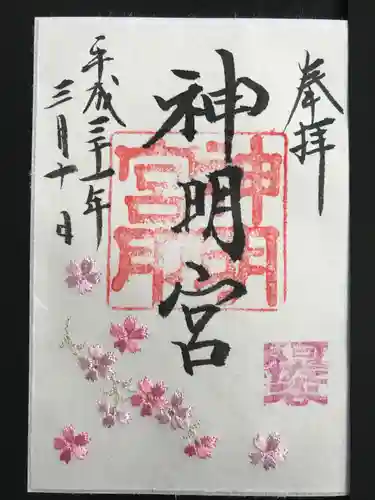 奉拝
神明宮
平成三十一年
三月十日
神明宮印